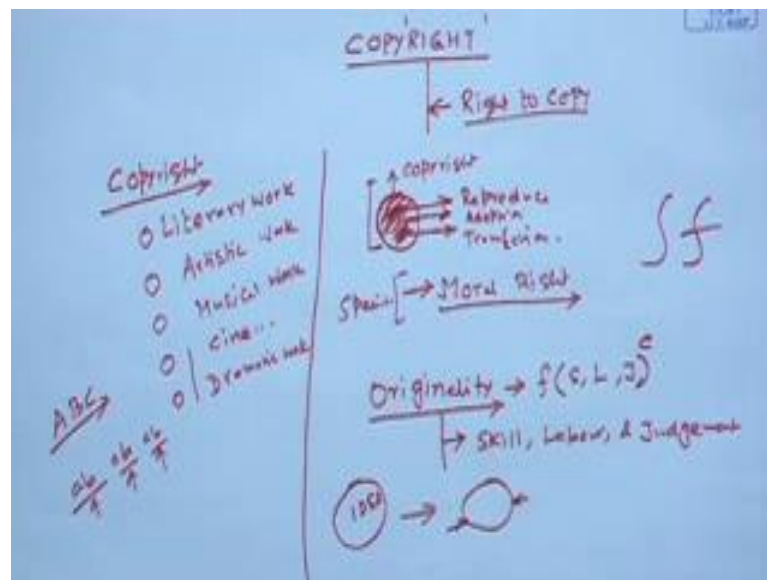 'COPYRIGHT'
← Right to Copy
Copyright
O Literary work
O Artistic work
O Musical work
O cine...
O Dramatic work
ABC
ab ab ab
Copyright
Reproduce
Adaption
Translation.
→ Moral Right
Originality → f(S, L, J)
→ Skill, Labour, & Judgement
IDEA →